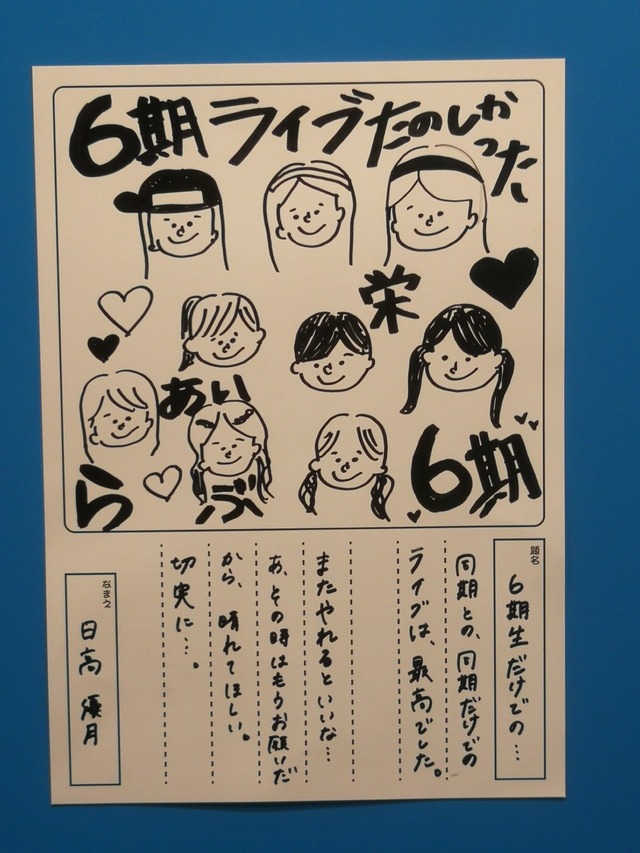 6期ライブたのしかった
栄
あいらぶ
6期
題名
6期生だけでの…
同期との、同期だけでの
ライブは、最高でした。
またやれるといいな…
あ、その時はもうお願いだ
から、晴れてほしい。
切実に…。
なまえ
日高 優月